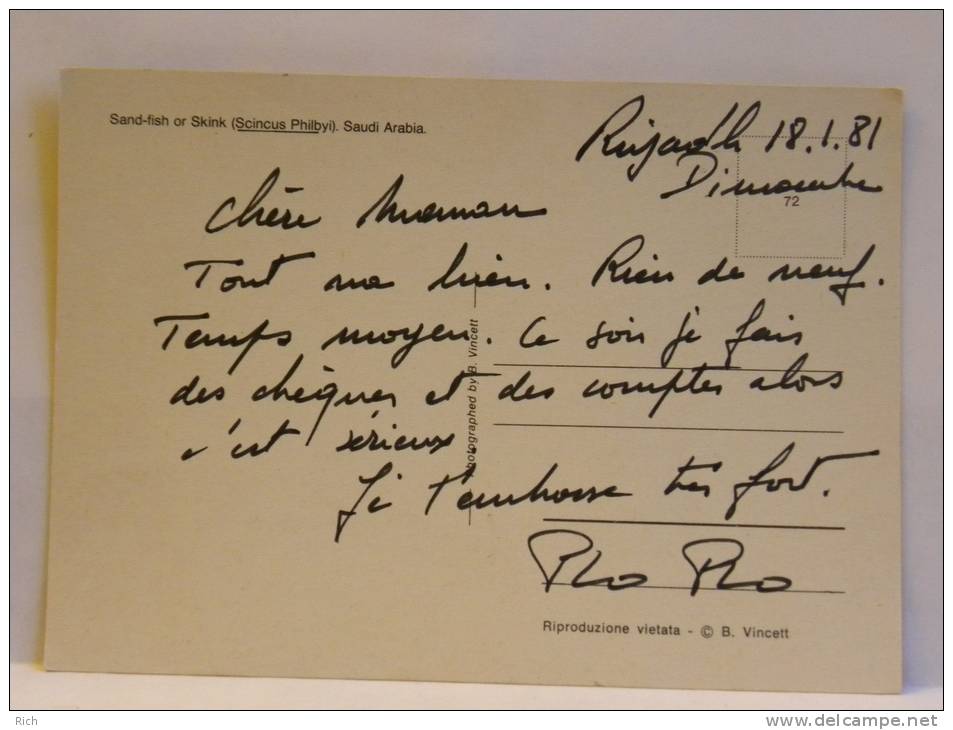 Sand-fish or Skink (Scincus Philbyi). Saudi Arabia.
Riyadh 18.1.81
Dimanche
72
Chère Maman
Tout va bien. Rien de neuf.
Temps moyen. Ce soir je fais
des chèques et des comptes alors
c'est sérieux
Je t'embrasse très fort.
Photographed by B. Vincett
Riproduzione vietata - © B. Vincett
Rich
www.delcampe.net